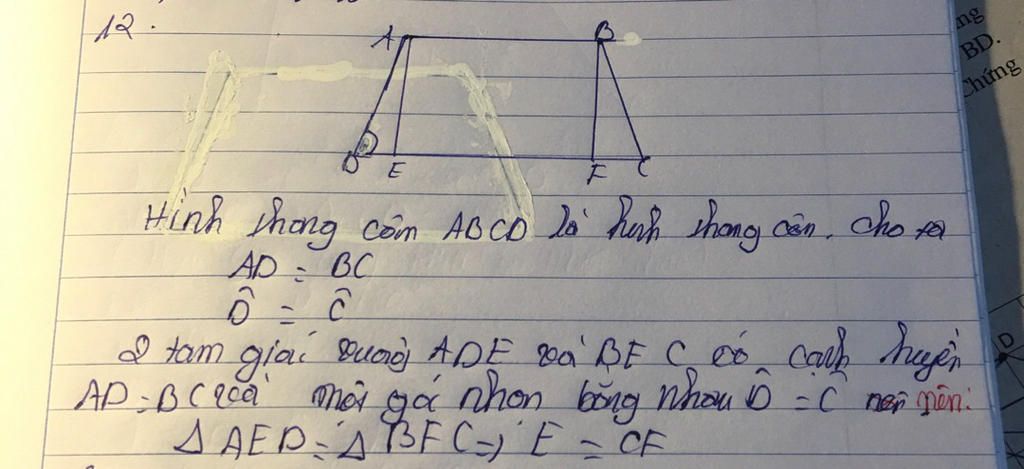 12.
A B
D E F C
Hình thang cân ABCD là hình thang cân. Cho ta
AD = BC
D̂ = Ĉ
2 tam giác vuông ADE và BFC có cạnh huyền
AD = BC và một góc nhọn bằng nhau D̂ = Ĉ nên:
Δ AED = Δ BFC => E = CF
ng
BD.
Chứng
D